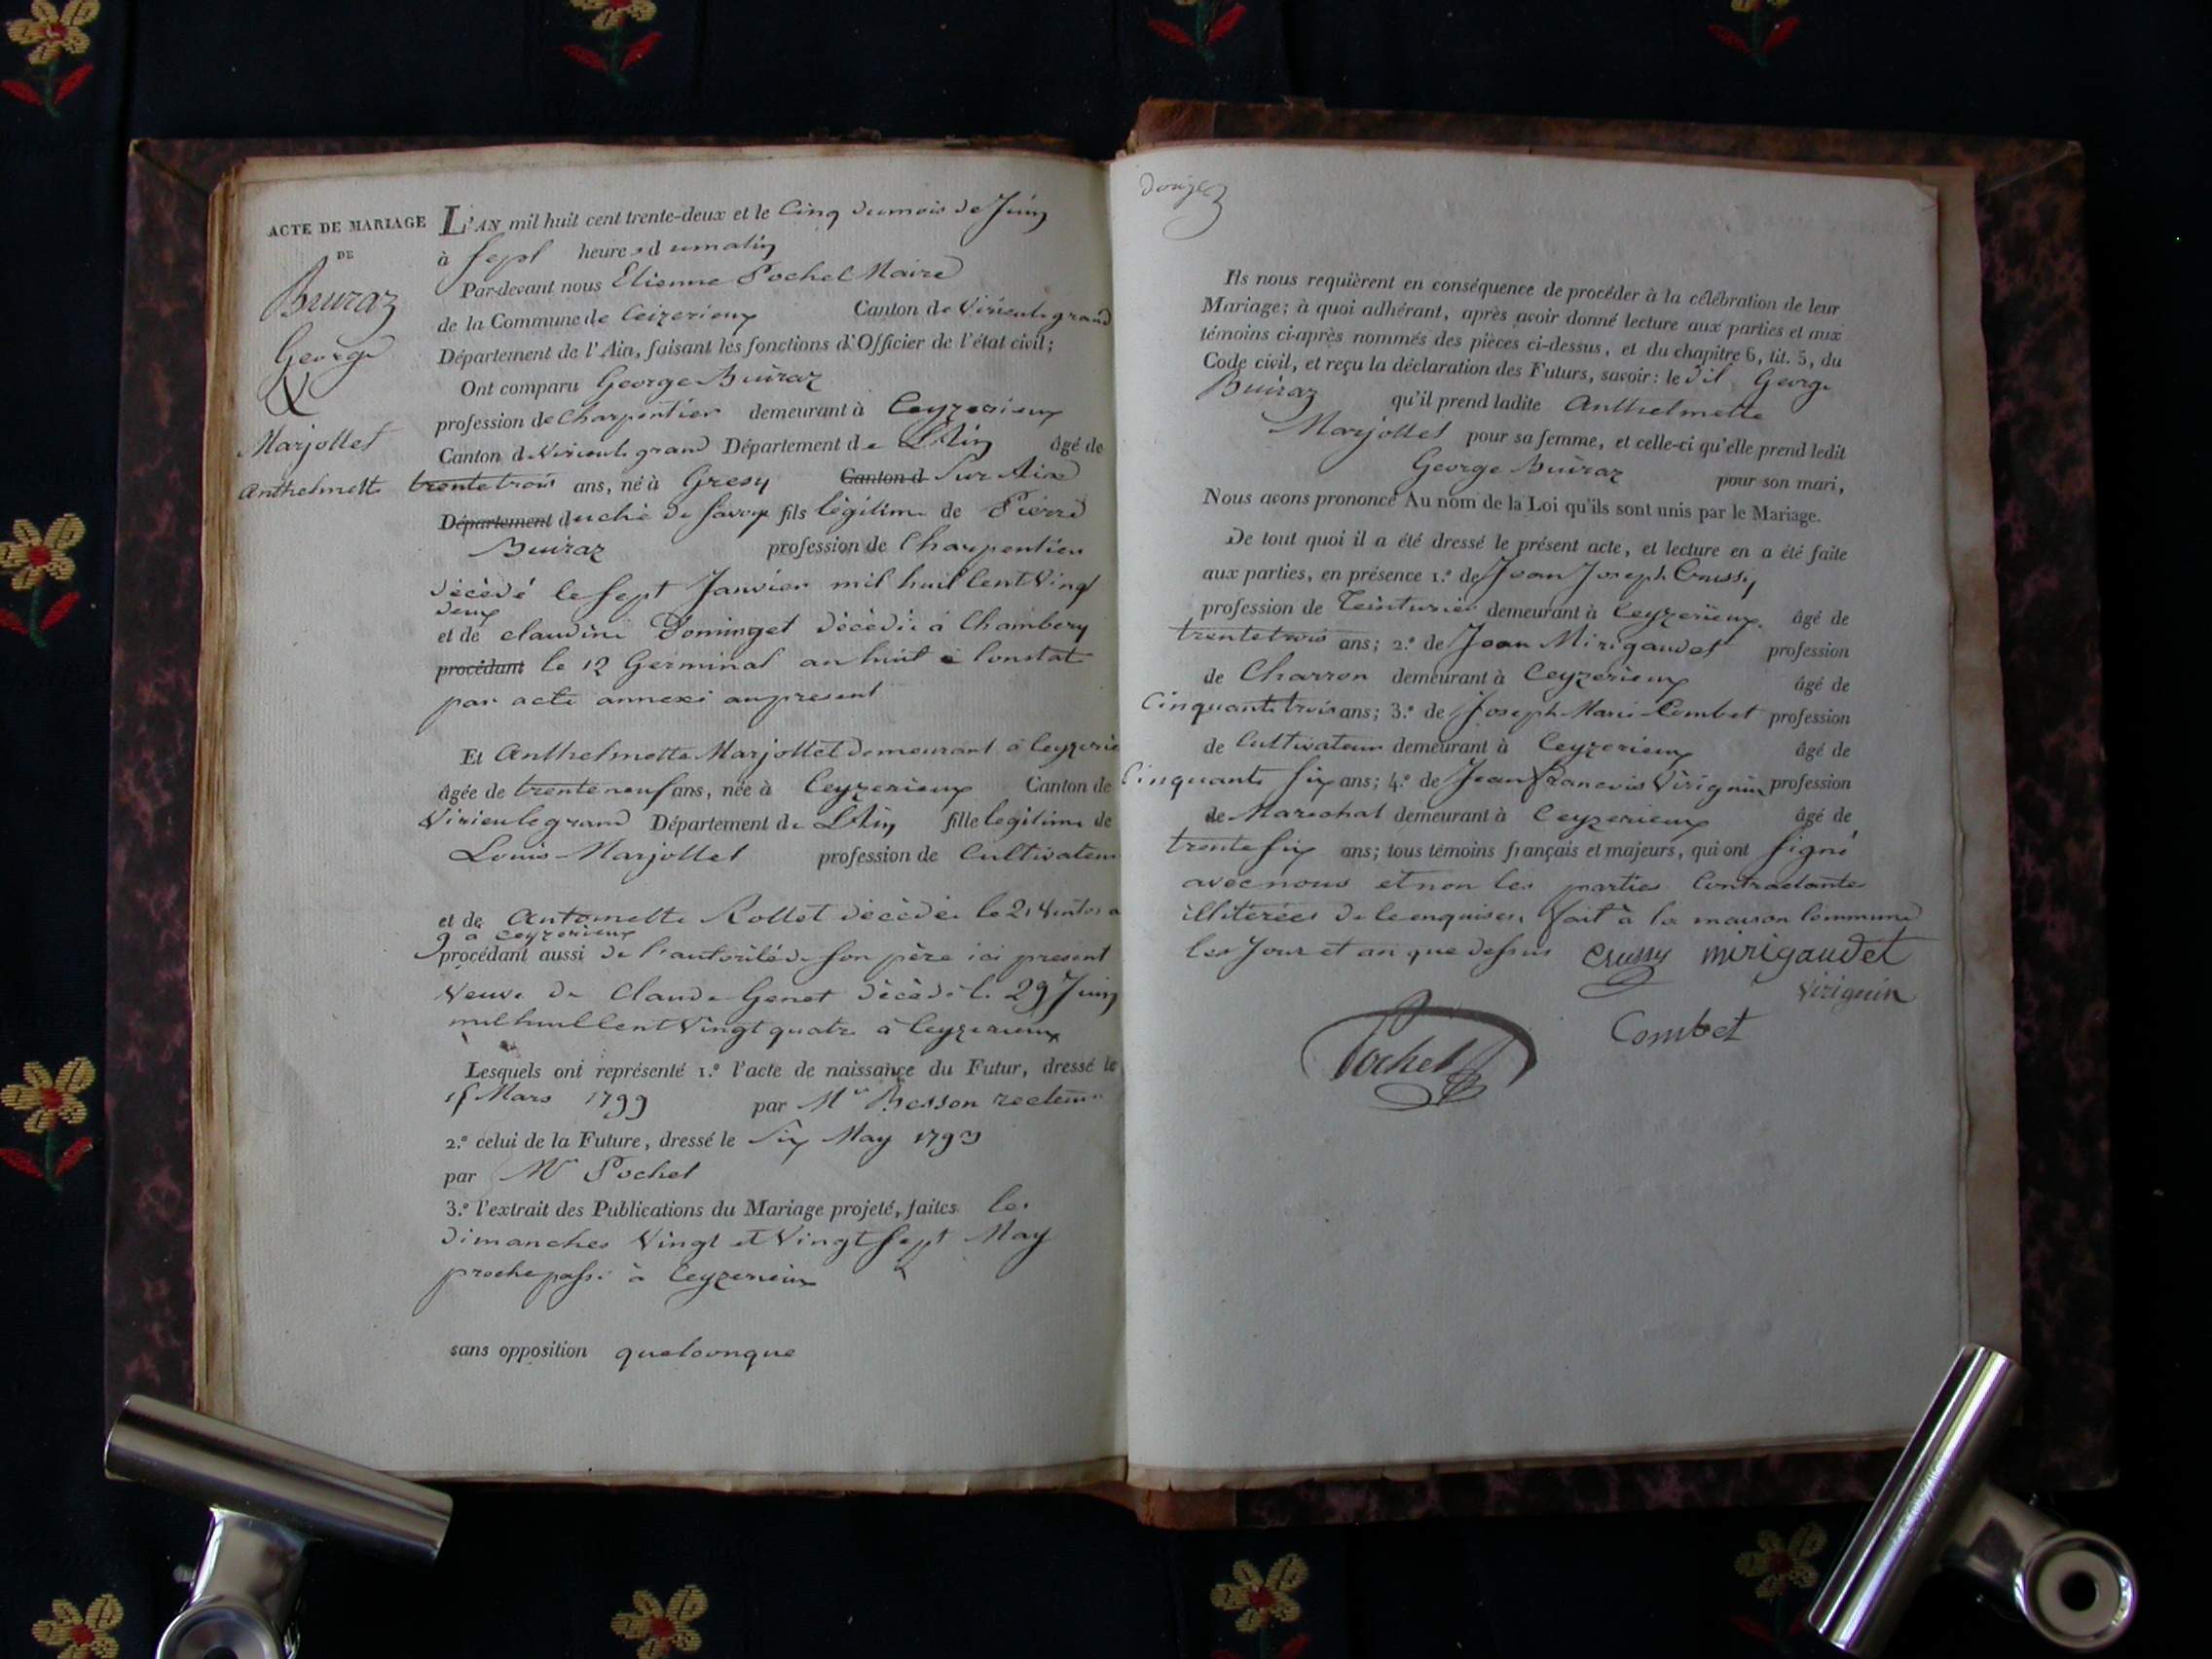 ACTE DE MARIAGE
DE
Buiraz
George
&
Marjollet
Anthelmette
L'AN mil huit cent trente-deux et le Cinq du mois de Juin
à Sept heures du matin
Par-devant nous Etienne Pochet Maire
de la Commune de Ceizerieux Canton de Virieu le grand
Département de l'Ain, faisant les fonctions d'Officier de l'état civil;
Ont comparu George Buiraz
profession de Charpentier demeurant à Ceyzerieux
Canton de Virieu le grand Département de L'Ain âgé de
trente trois ans, né à Gresy Canton d Sur Aix
Département duché de Savoye fils légitime de Pierre
Buiraz profession de Charpentier
décédé le Sept Janvier mil huit Cent Vingt
deux
et de claudine Dominget décédée à Chambery
procédant le 12 Germinal an huit Constat
par acte annexé au present
Et Anthelmette Marjollet demeurant à Ceyzerie
âgée de trente neuf ans, née à Ceyzerieux Canton de
Virieu le grand Département de L'Ain fille legitime de
Louis Marjollet profession de Cultivateur
et de Antoinette Rollet décédée le 21 Ventos a
9 a Ceyzerieux
procédant aussi de l'autorité de Son père ici present
Veuve de Claude Genet décédé le 29 Juin
mil huit Cent Vingt quatre à Ceyzerieux
Lesquels ont représenté 1.º l'acte de naissance du Futur, dressé le
15 Mars 1799 par Mr Besson recteur
2.º celui de la Future, dressé le Six May 1793
par Mr Pochet
3.º l'extrait des Publications du Mariage projeté, faites les
dimanches Vingt et Vingt Sept May
proche passé à Ceyzerieux
sans opposition quelconque
Ils nous requièrent en conséquence de procéder à la célébration de leur
Mariage; à quoi adhérant, après avoir donné lecture aux parties et aux
témoins ci-après nommés des pièces ci-dessus, et du chapitre 6, tit. 5, du
Code civil, et reçu la déclaration des Futurs, savoir: le dit George
Buiraz qu'il prend ladite Anthelmette
Marjollet pour sa femme, et celle-ci qu'elle prend ledit
George Buiraz pour son mari,
Nous avons prononcé Au nom de la Loi qu'ils sont unis par le Mariage.
De tout quoi il a été dressé le présent acte, et lecture en a été faite
aux parties, en présence 1.º de Jean Joseph Crussy
profession de Teinturier demeurant à Ceyzerieux âgé de
trente trois ans; 2.º de Jean Mirigaudet profession
de Charron demeurant à Ceyzerieux âgé de
Cinquante trois ans; 3.º de Joseph Marie Combet profession
de Cultivateur demeurant à Ceyzerieux âgé de
Cinquante Six ans; 4.º de Jean Francois Virignin profession
de Marechal demeurant à Ceyzerieux âgé de
trente Six ans; tous témoins français et majeurs, qui ont Signé
avec nous et non les parties Contractantes
illiterées de ce enquises. fait à la maison Commune
les Jour et an que dessus Crussy mirigaudet
Virignin
Combet
Pochet